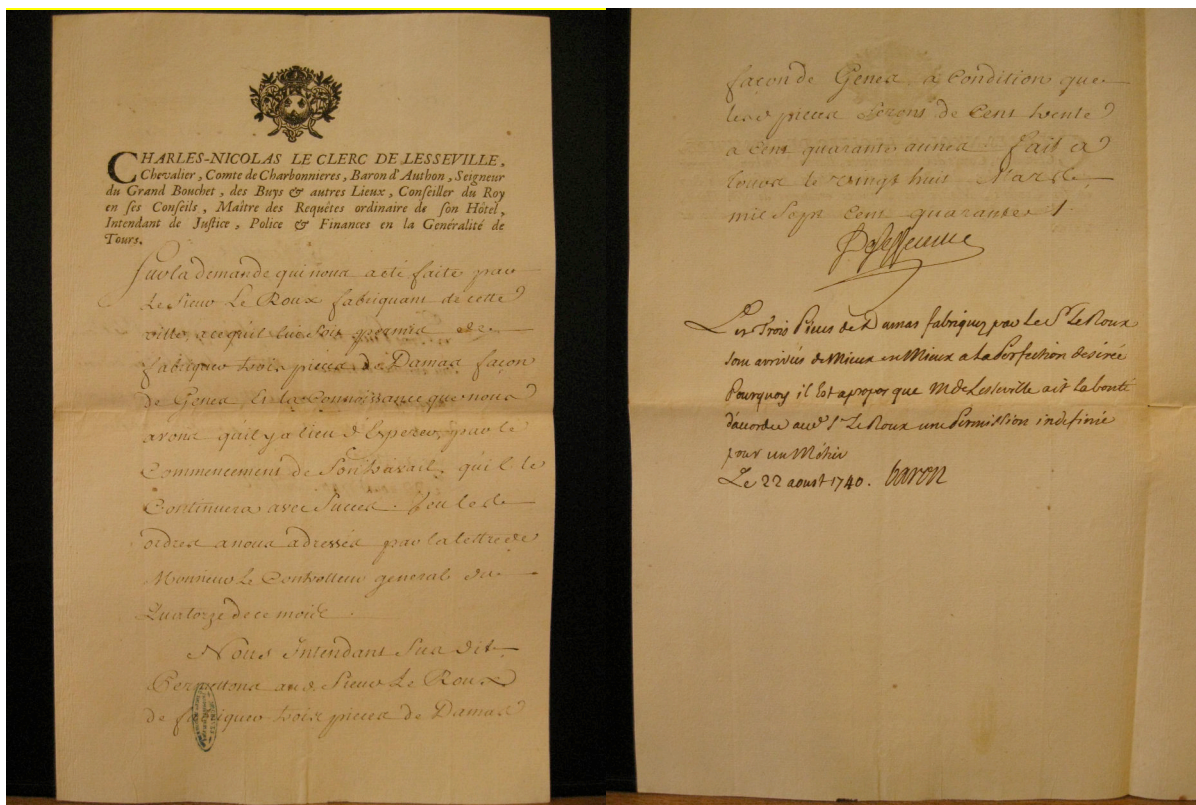 CHARLES-NICOLAS LE CLERC DE LESSEVILLE,
Chevalier, Comte de Charbonnieres, Baron d'Authon, Seigneur
du Grand Bouchet, des Buys & autres Lieux, Conseiller du Roy
en ses Conseils, Maître des Requêtes ordinaire de son Hôtel,
Intendant de Justice, Police & Finances en la Genéralité de
Tours.
Sur la demande qui nous a eté faite par
Le Sieur Le Roux fabriquant de cette
ville, a ce quil lui soit permis de
fabriquer trois pieces de Damas façon
de Genes, Et la Connoissance que nous
avons qu'il y a lieu d'Esperer, par le
Commencement de Son travail, qu'il le
Continuera avec Succes. Veu le de
ordres a nous adressés par la lettre de
Monsieur Le Controlleur general du
Quatorze de ce mois.
Nous Intendant Sus dit
Permettons aud. Sieur Le Roux
de fabriquer trois pieces de Damas
façon de Genes, a Condition que
les pieces seront de Cent trente
a Cent quarante aunes fait a
Tours le vingt huit Mars
mil Sept Cent quarante
De Lesseville
Les Trois Pieces de Damas fabriquez par le Sr Le Roux
sont arrivés de Mieux en Mieux a La Perfection desirée
Pourquoy il Est apropos que M. de Lesseville ait la bonté
d'accorder aud. Sr Le Roux une Permission indefinie
pour un Métier
Le 22 aoust 1740. baron